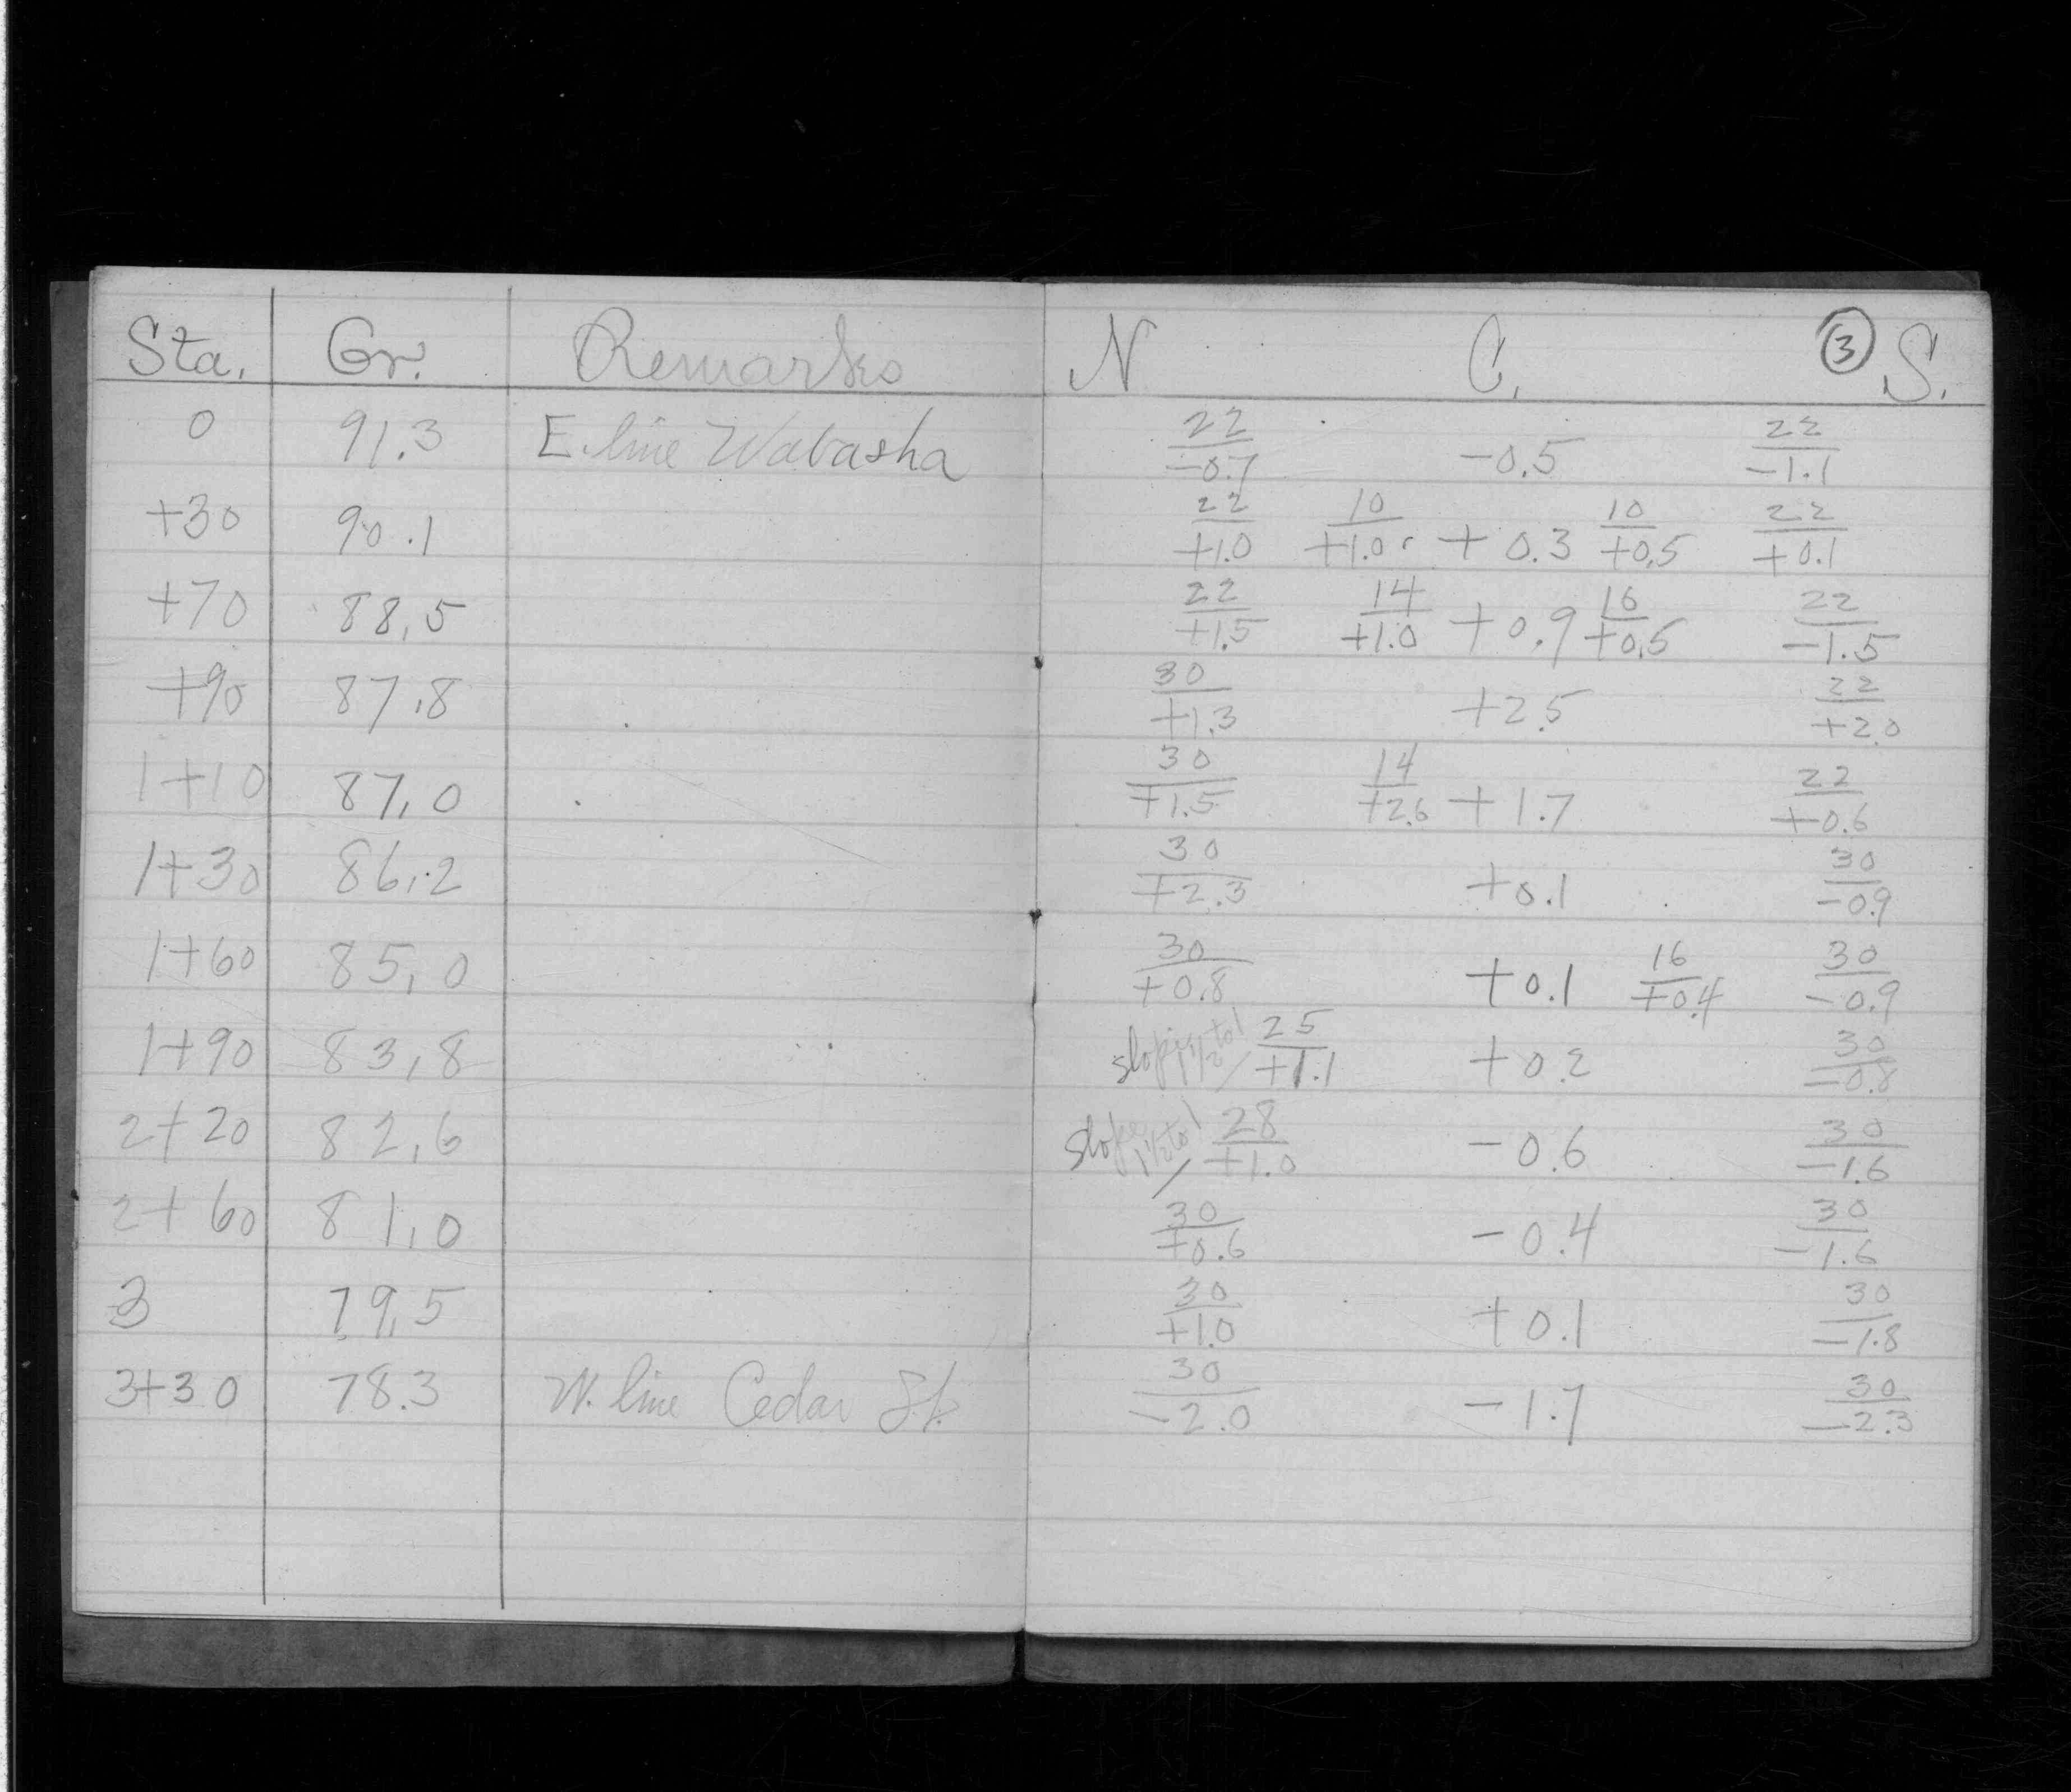 Sta. Gr. Remarks N C. ③ S.
0 91.3 E. line Wabasha 22/-0.7 -0.5 22/-1.1
+30 90.1 22/+1.0 10/+1.0 +0.3 10/+0.5 22/+0.1
+70 88.5 22/+1.5 14/+1.0 +0.9 16/+0.5 22/-1.5
+90 87.8 30/+1.3 +2.5 22/+2.0
1+10 87.0 30/+1.5 14/+2.6 +1.7 22/+0.6
1+30 86.2 30/+2.3 +0.1 30/-0.9
1+60 85.0 30/+0.8 +0.1 16/+0.4 30/-0.9
1+90 83.8 slope 1½ to 1 / 25/+1.1 +0.2 30/-0.8
2+20 82.6 slope 1½ to 1 / 28/+1.0 -0.6 30/-1.6
2+60 81.0 30/+0.6 -0.4 30/-1.6
3 79.5 30/+1.0 +0.1 30/-1.8
3+30 78.3 W. line Cedar St. 30/-2.0 -1.7 30/-2.3